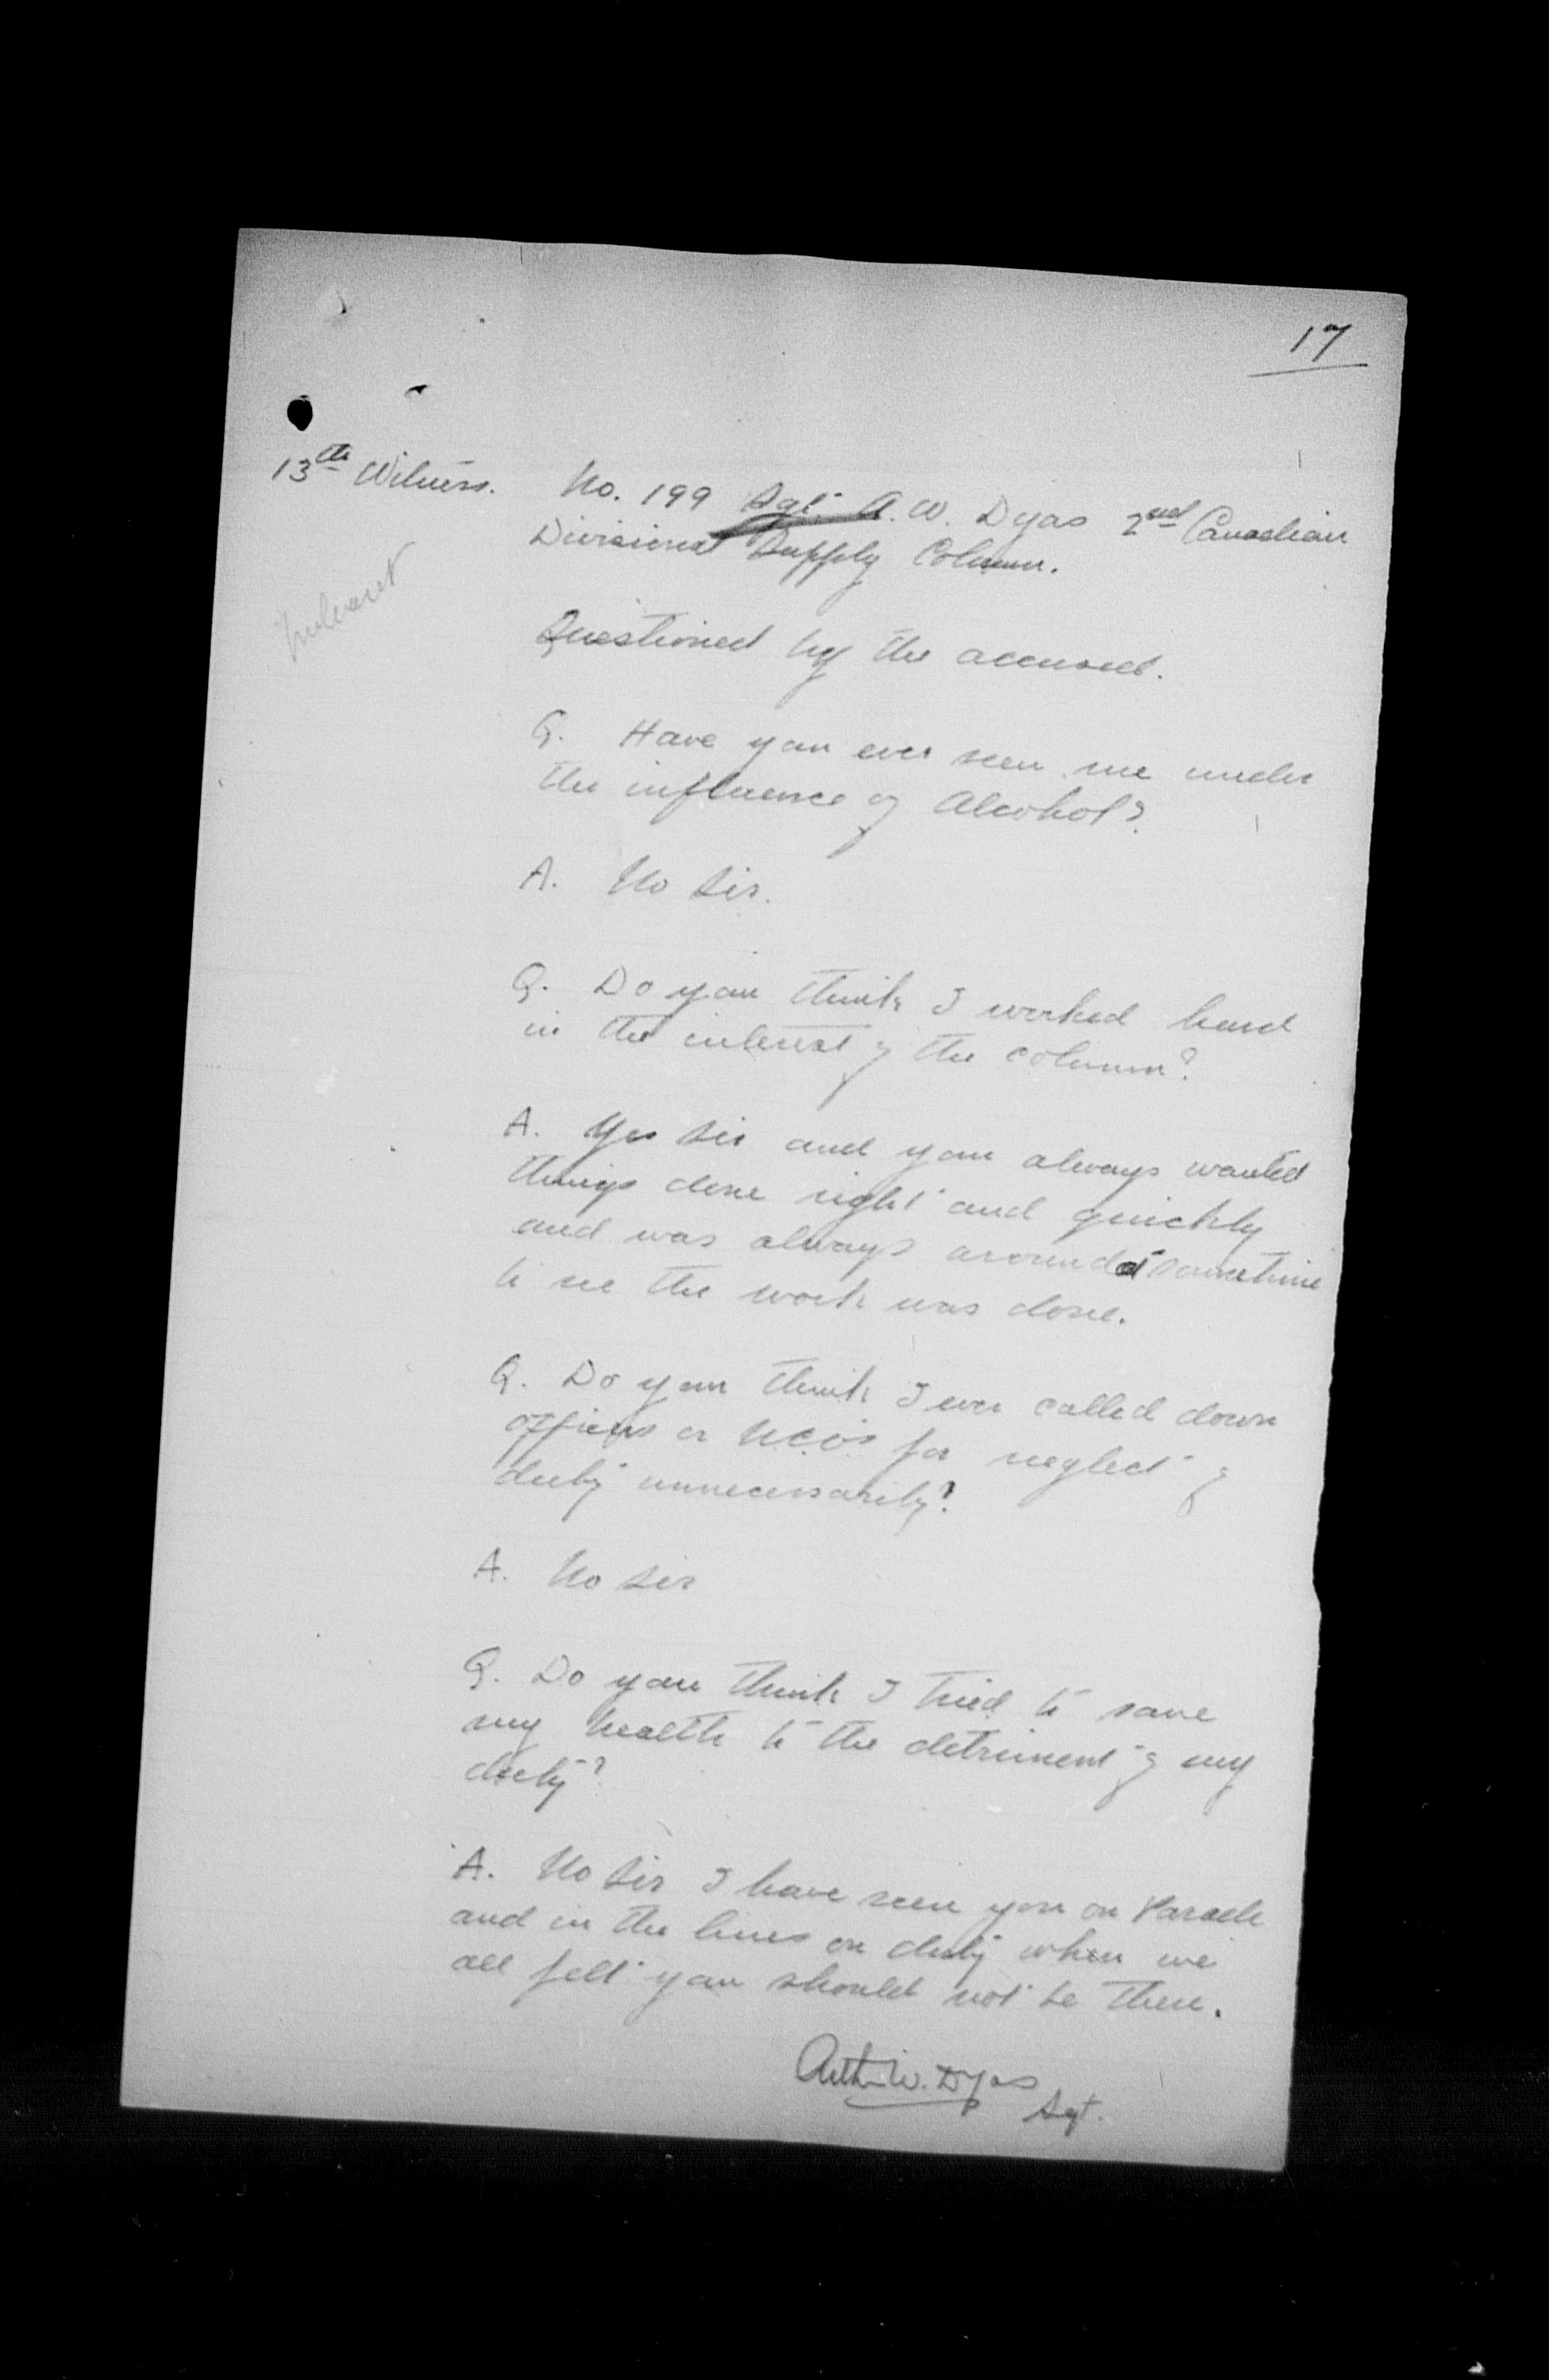 17
13th Witness. No. 199 Sgt. A. W. Dyas 2nd Canadian
Divisional Supply Column.
Questioned by the accused.
Q. Have you ever seen me under
the influence of Alcohol?
A. No Sir.
Q. Do you think I worked hard
in the interest of the column?
A. Yes Sir and you always wanted
things done right and quickly
and was always around at sometime
to see the work was done.
Q. Do you think I ever called down
officers or N.C.O's for neglect of
duty unnecessarily?
A. No Sir
Q. Do you think I tried to save
my health to the detriment of my
duty?
A. No Sir I have seen you on Parade
and in the lines on duty when we
all felt you should not be there.
Arthur W. Dyas
Sgt.